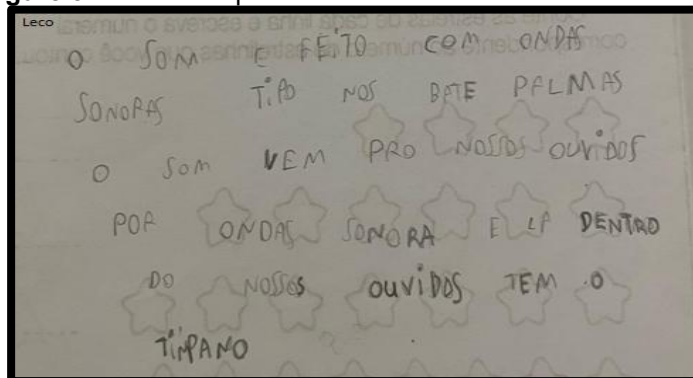 Leco
O SOM E FEITO COM ONDAS
SONORAS TIPO NOS BATE PALMAS
O SOM VEM PRO NOSSOS OUVIDOS
POR ONDAS SONORA E LA DENTRO
DO NOSSOS OUVIDOS TEM O
TÍMPANO